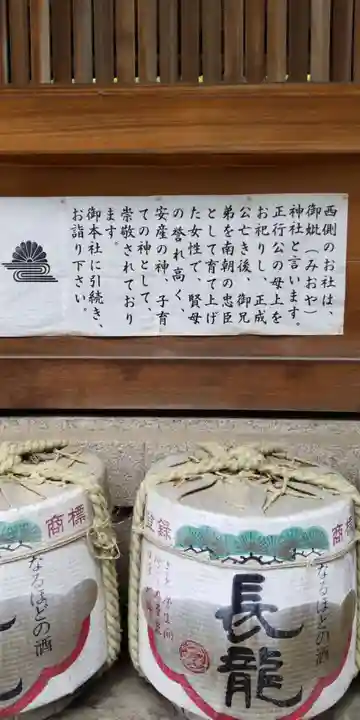 西側のお社は、
御妣(みおや)
神社と言います。
正行公の母上を
お祀りし、正成
公亡き後、御兄
弟を南朝の忠臣
として育て上げ
た女性で、賢母
の誉れ高く、
安産の神、子育
ての神として、
崇敬されており
ます。
御本社に引続き、
お詣り下さい。
商標
なるほどの酒
登録
商標
なるほどの酒
長龍